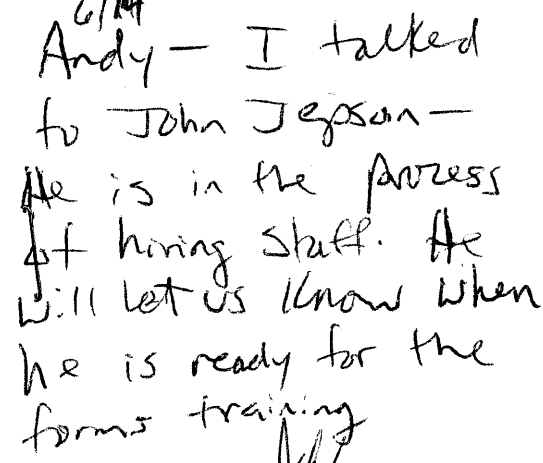 6/14
Andy – I talked
to John Jepson –
He is in the process
of hiring staff. He
will let us know when
he is ready for the
forms training